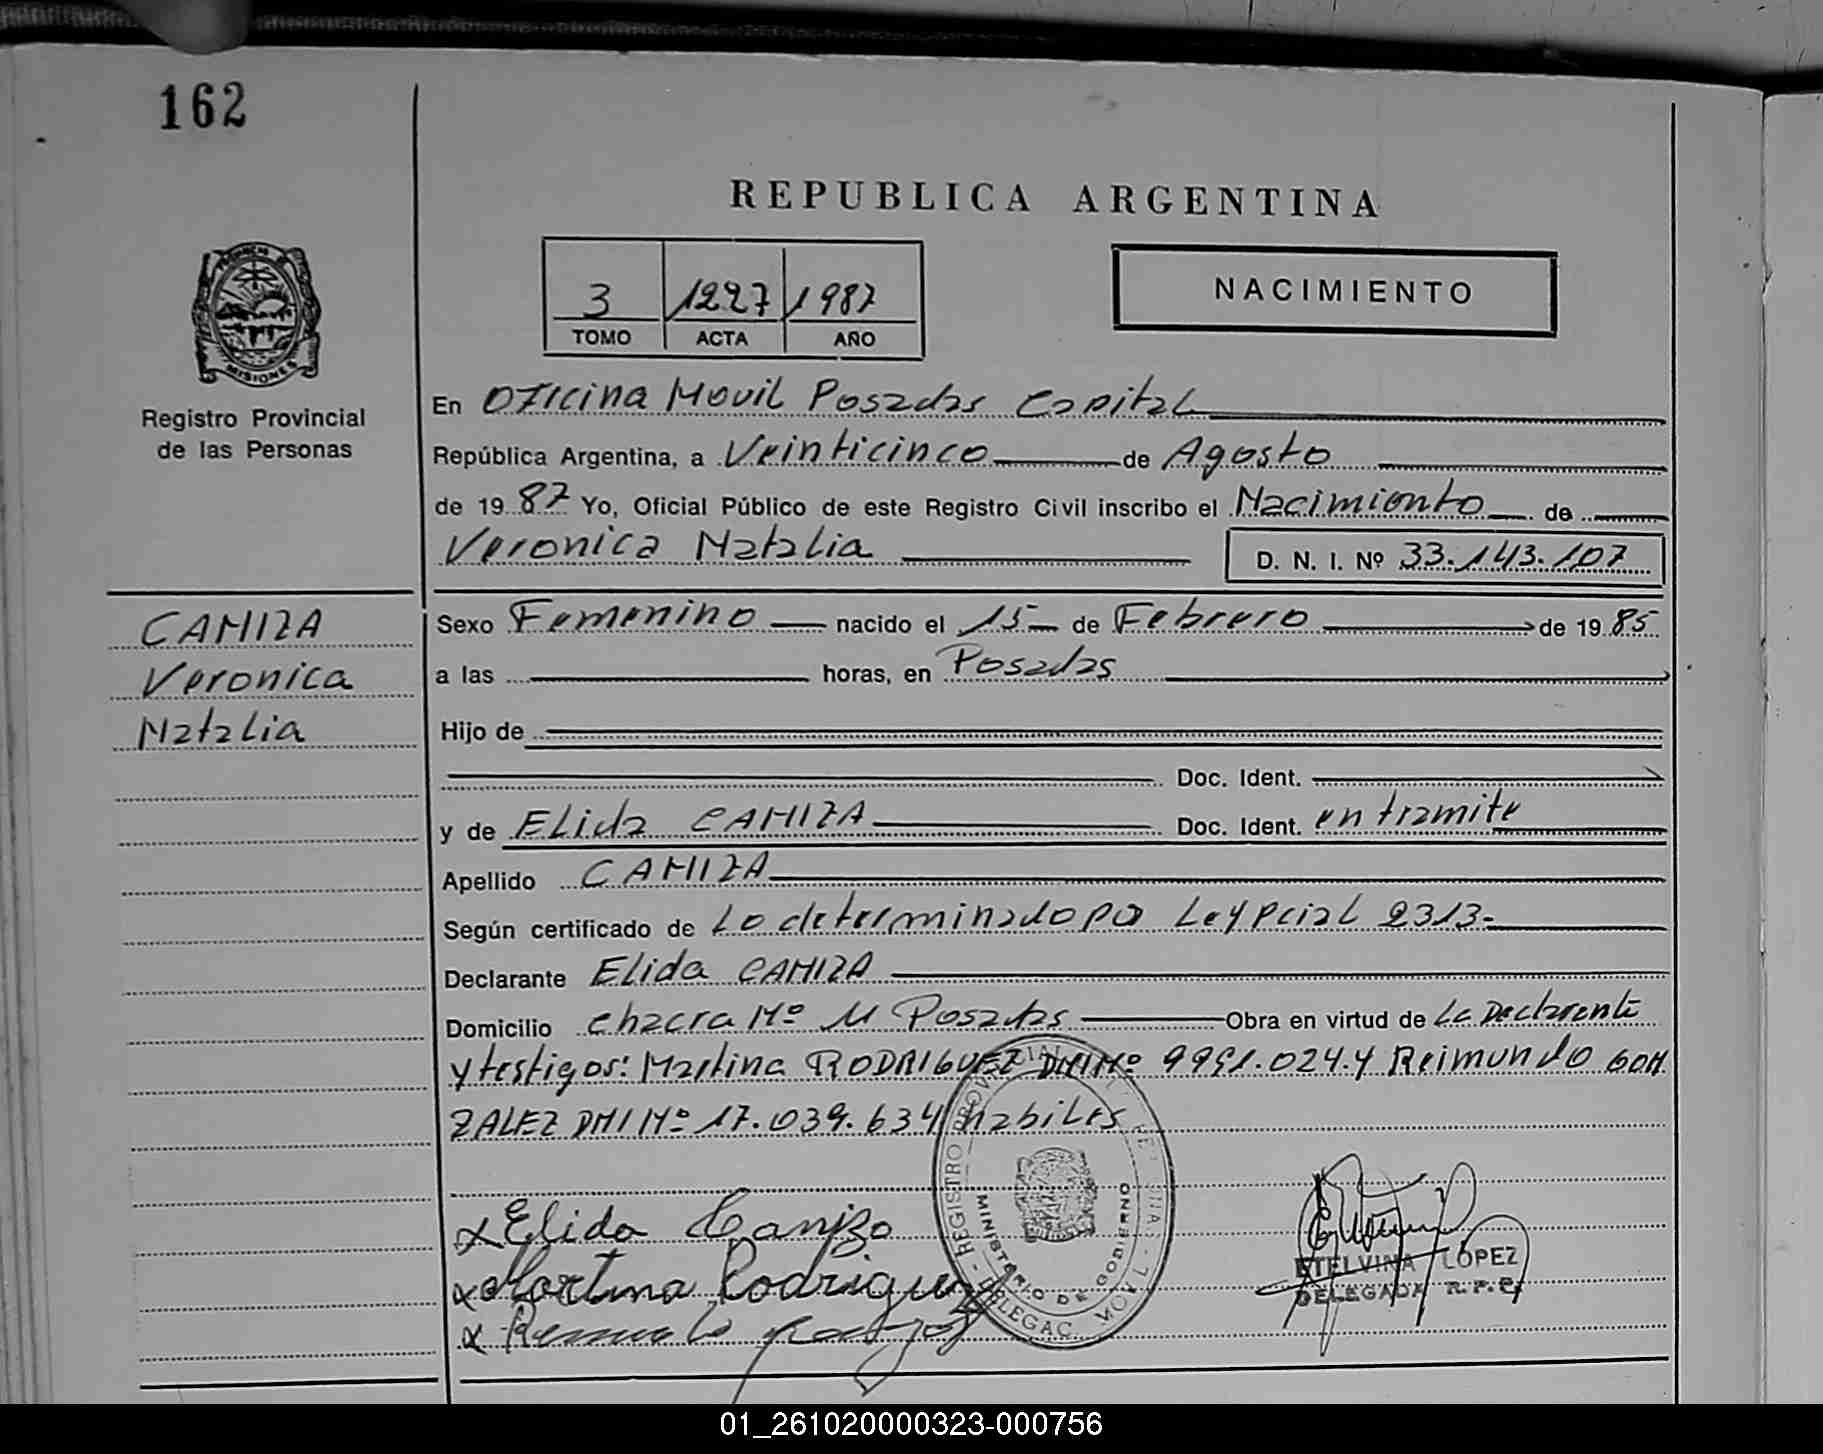 162
REPUBLICA ARGENTINA
3 1227 1987
TOMO ACTA AÑO
NACIMIENTO
MISIONES
Registro Provincial
de las Personas
En Oficina Movil Posadas Capital
República Argentina, a Veinticinco de Agosto
de 19 87 Yo, Oficial Público de este Registro Civil inscribo el Nacimiento de
Veronica Natalia D. N. I. Nº 33.143.107
CANIZA
Veronica
Natalia
Sexo Femenino nacido el 15 de Febrero de 19 85
a las horas, en Posadas
Hijo de
Doc. Ident.
y de Elida CANIZA Doc. Ident. en tramite
Apellido CANIZA
Según certificado de Lo determinado por Ley Pcial 2313-
Declarante Elida CANIZA
Domicilio chacra Nº 11 Posadas Obra en virtud de La Declarante
y testigos: Martina RODRIGUEZ DNI Nº 9991.024 y Reimundo GON
ZALEZ DNI Nº 17.039.634 habiles
x Elida Canizo
x Martina Rodriguez
x
REGISTRO PROVINCIAL DE LAS PERSONAS - DELEGAC. MOVIL
MINISTERIO DE GOBIERNO
ETELVINA LOPEZ
DELEGADA R.P.P.
01_261020000323-000756